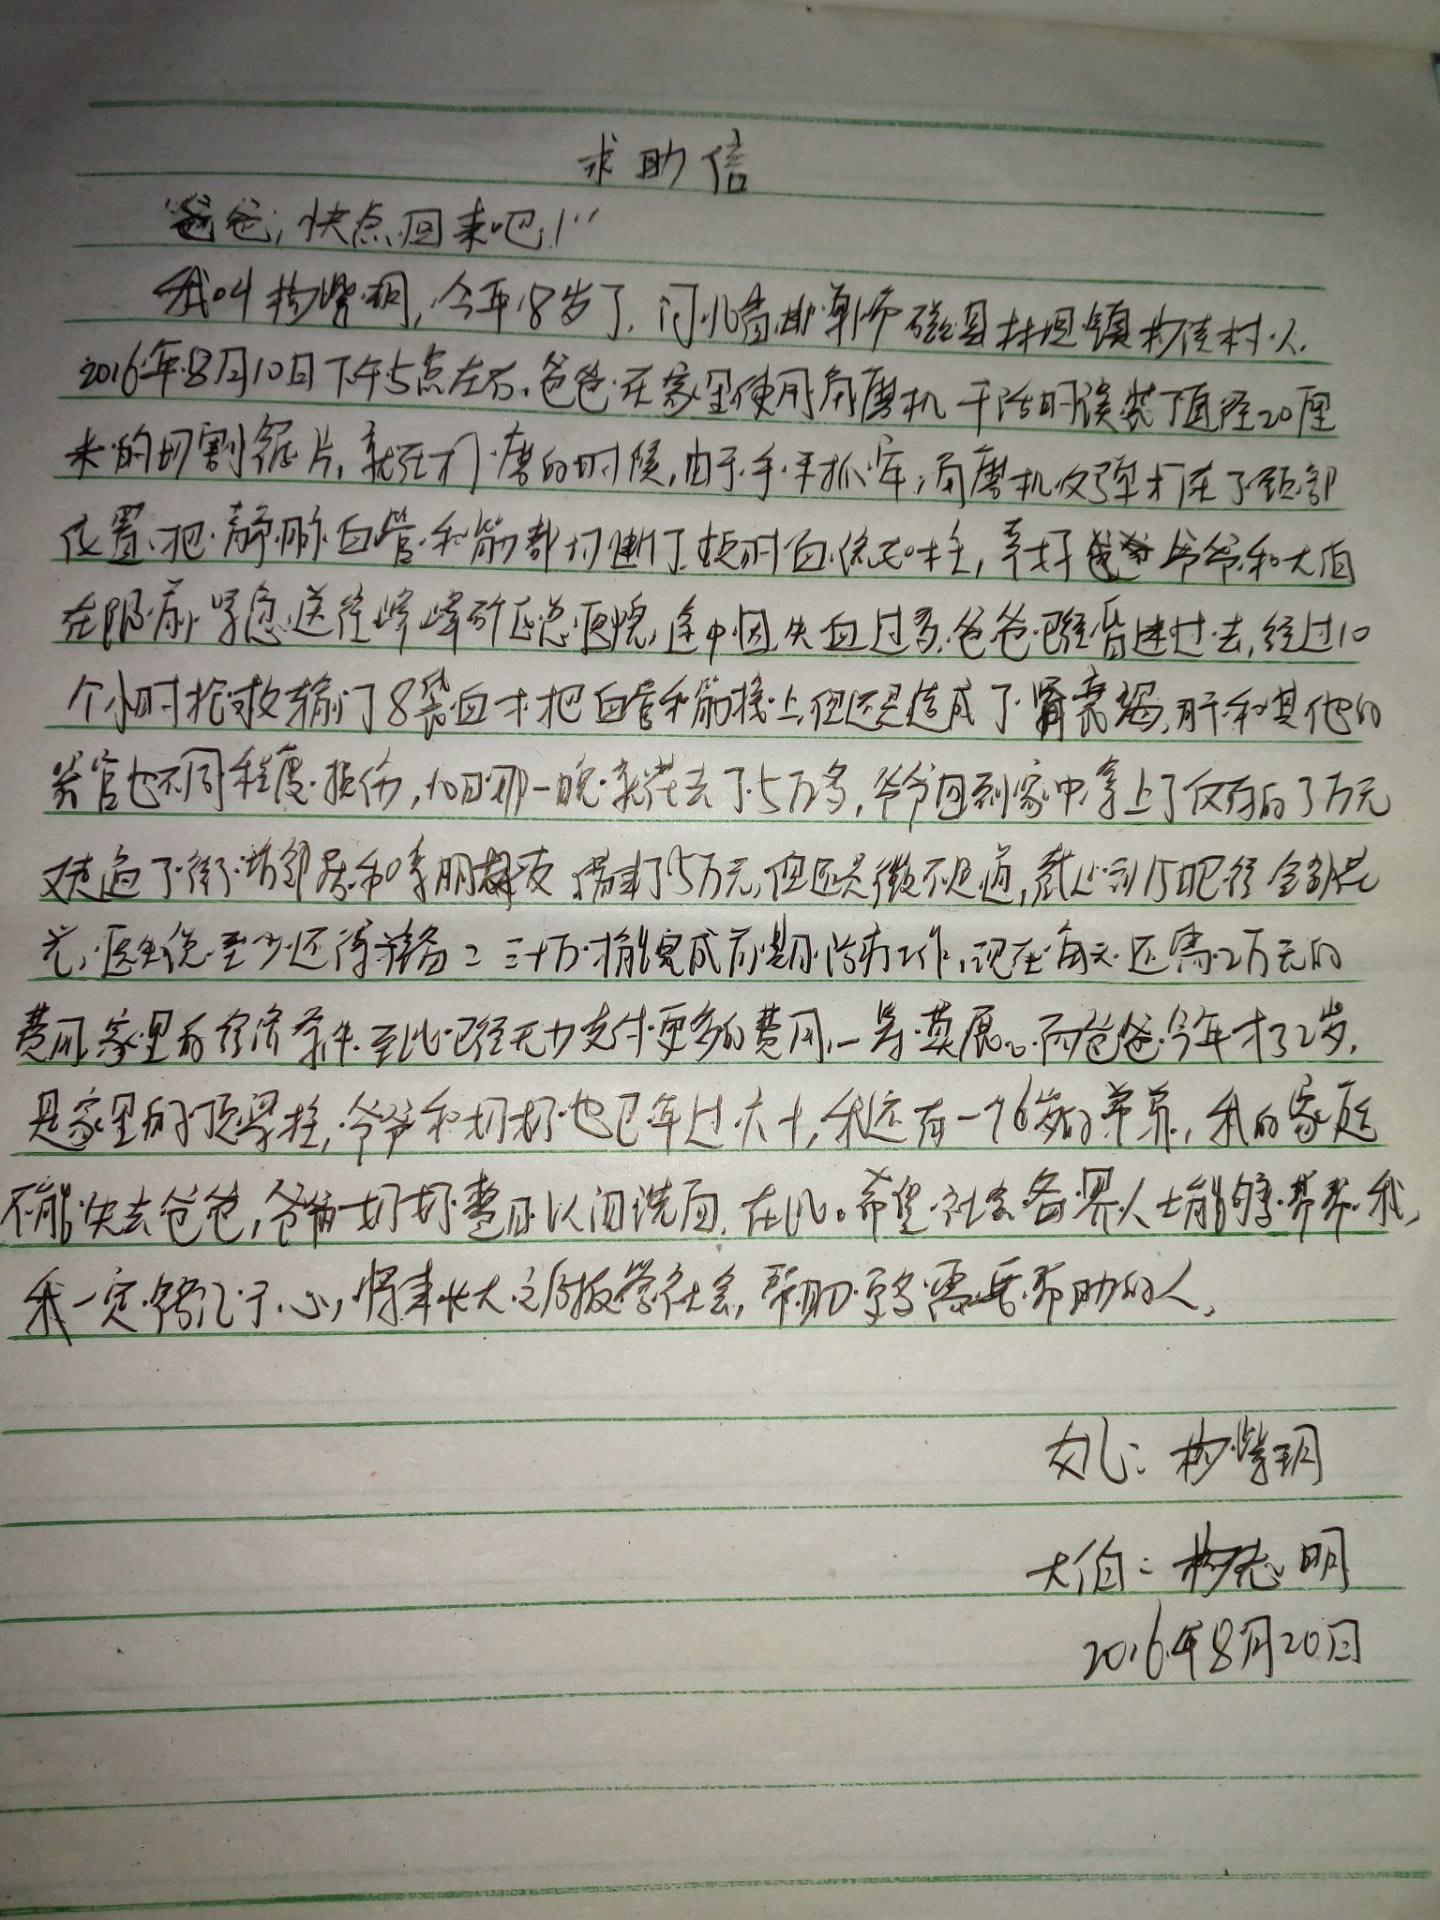 求助信
爸爸,快点回来吧!"
我叫杨紫玥,今年8岁了,河北省邯郸市磁县林坦镇杨庄村人.
2016年8月10日下午5点左右,爸爸在家里使用角磨机干活时误装了直径20厘
米的切割锯片,就在打磨的时候,由于手没抓牢,角磨机反弹打在了颈部
位置,把静脉血管和筋都切断了顿时血流如柱,幸好爷爷和大伯
在眼前,紧急送往峰峰矿区总医院,途中因失血过多,爸爸已经昏迷过去,经过10
个小时抢救输了8袋血才把血管和筋接上,但还是造成了肾衰竭,肝和其他的
器官也不同程度损伤,10日那一晚就花去了5万多,爷爷回到家中拿上了仅有的3万元
又走遍了街坊邻居和亲朋好友借来了5万元,但还是微不足道,截止到15日已经全部花
光,医生说至少还得准备二三十万才能完成前期治疗工作,现在每天还需2万元的
费用,家里的经济条件至此已经无力支付更多的费用,一筹莫展。而爸爸今年才32岁,
是家里的顶梁柱,爷爷和奶奶也已年过六十,我还有一个6岁的弟弟,我的家庭
不能失去爸爸,爷爷奶奶整日以泪洗面,在此。希望社会各界人士能够帮帮我,
我一定铭记于心,将来长大之后报答社会,帮助更多需要帮助的人,
女儿:杨紫玥
大伯:杨志明
2016年8月20日